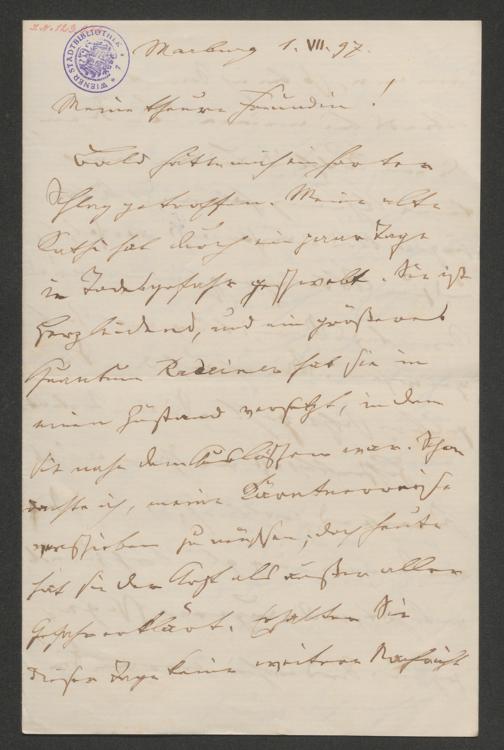 WIENER STADTBIBLIOTHEK
Marburg 1. VII. 97.
Meine theure Freundin!
Bald hätte mich ein harter
Schlag getroffen. Meine alte
Kathi hat durch ein paar Tage
in Todesgefahr geschwebt. Sie ist
herzleidend, und ein größeres
Quantum Radeiner hat sie in
einen Zustand versetzt, in dem
sie nahe dem Auslöschen war. Schon
dachte ich, meine Kärntnerreise
verschieben zu müssen; doch heute
hat sie der Arzt als außer aller
Gefahr erklärt. Erhalten Sie
dieser Tage keine weitere Nachricht